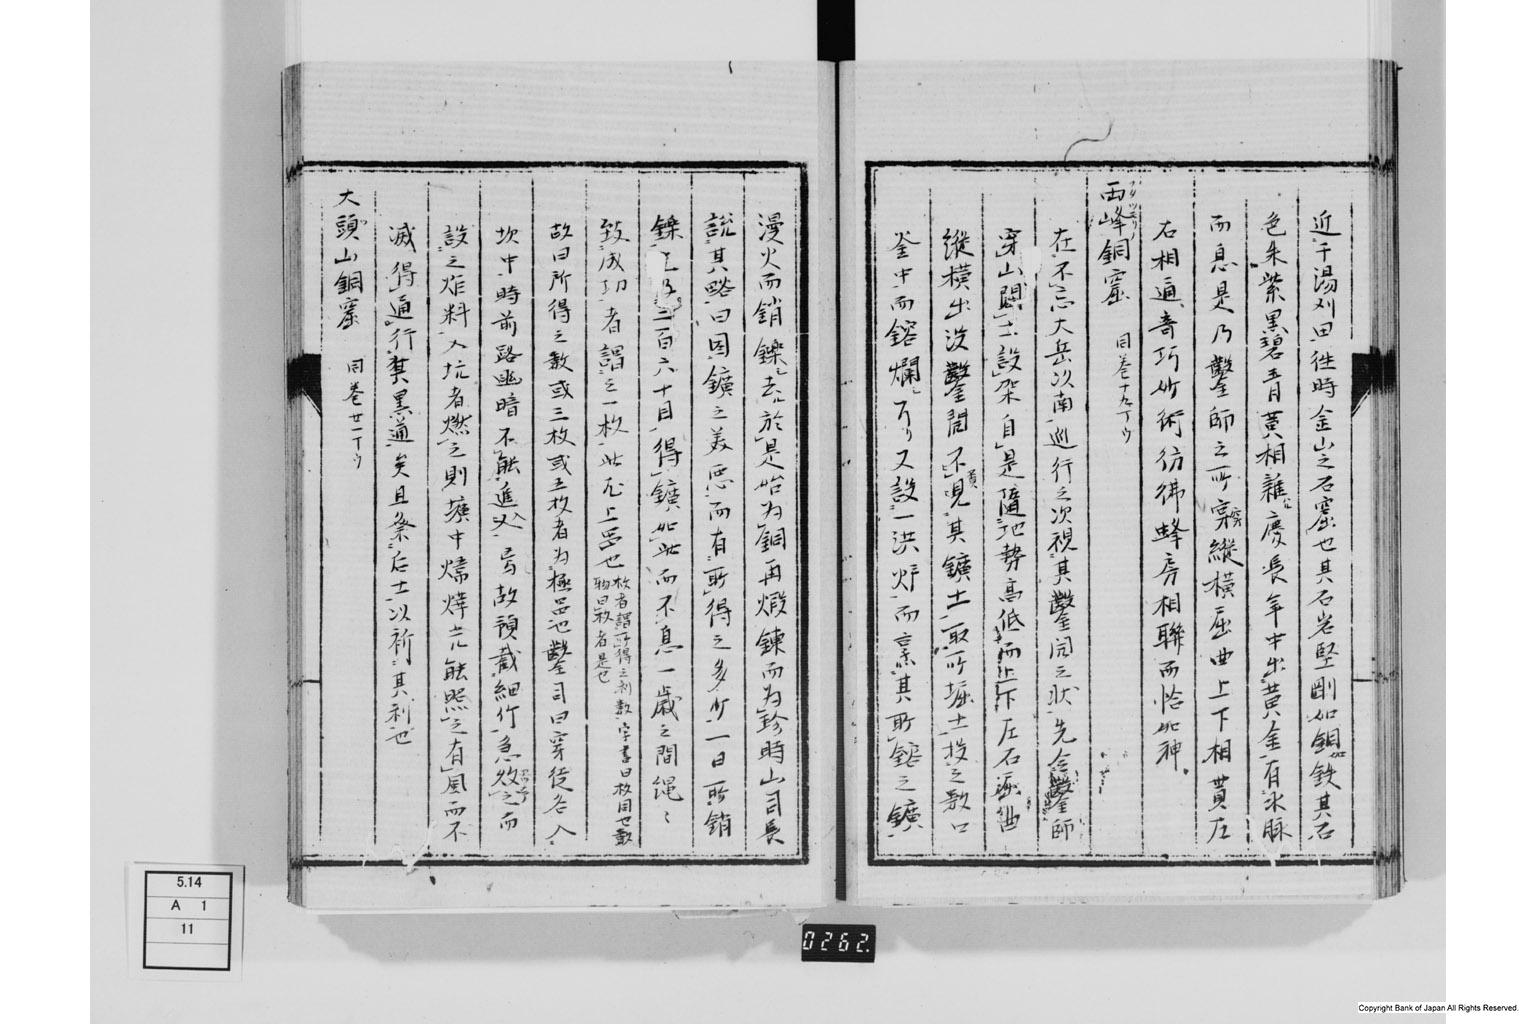 近于湯刈田往時金山之石窟也其石岩堅剛如銅如鉄其石
色朱紫黒碧青黄相雜慶長年中出黄金有氷脉
而息是乃鑿師之所穿縦横屈曲上下相貫左
右相遍奇巧竹術彷彿蜂房相聯而恰如神
雨峰銅窟 同巻十九丁ウ
在不忘大岳以南巡行之次視其鑿同之状先令鑿師
穿山闢土設架自是隨地勢高低而上下左右
縦横出没鑿間不見其鑛土取所堀土投之数口
釜中而鎔爛了又設一洪炉而烹其所鎔之鑛
漫火而銷鑠去於是始為銅再煅錬而為時山司長
説其略曰因鑛之美悪而有所得之多少一日所銷
鑠二百六十目得鑛如此而不息一歳之間
致成功者謂之一枚此上品也 枚者謂所得之利数字書曰枚固也数
物曰枚者是也
故曰所得之数或三枚或五枚者為極品也鑿司曰穿徒各入
坎中時前路幽暗不能進故預截細竹急而
設之炸料入坑者燃之則壙中能照之有風而不
滅得通行其黒道矣且祭后土以祈其利也
大頭山銅窟 同巻廿一丁ウ
5.14
A 1
11
0262.
Copyright Bank of Japan All Rights Reserved.